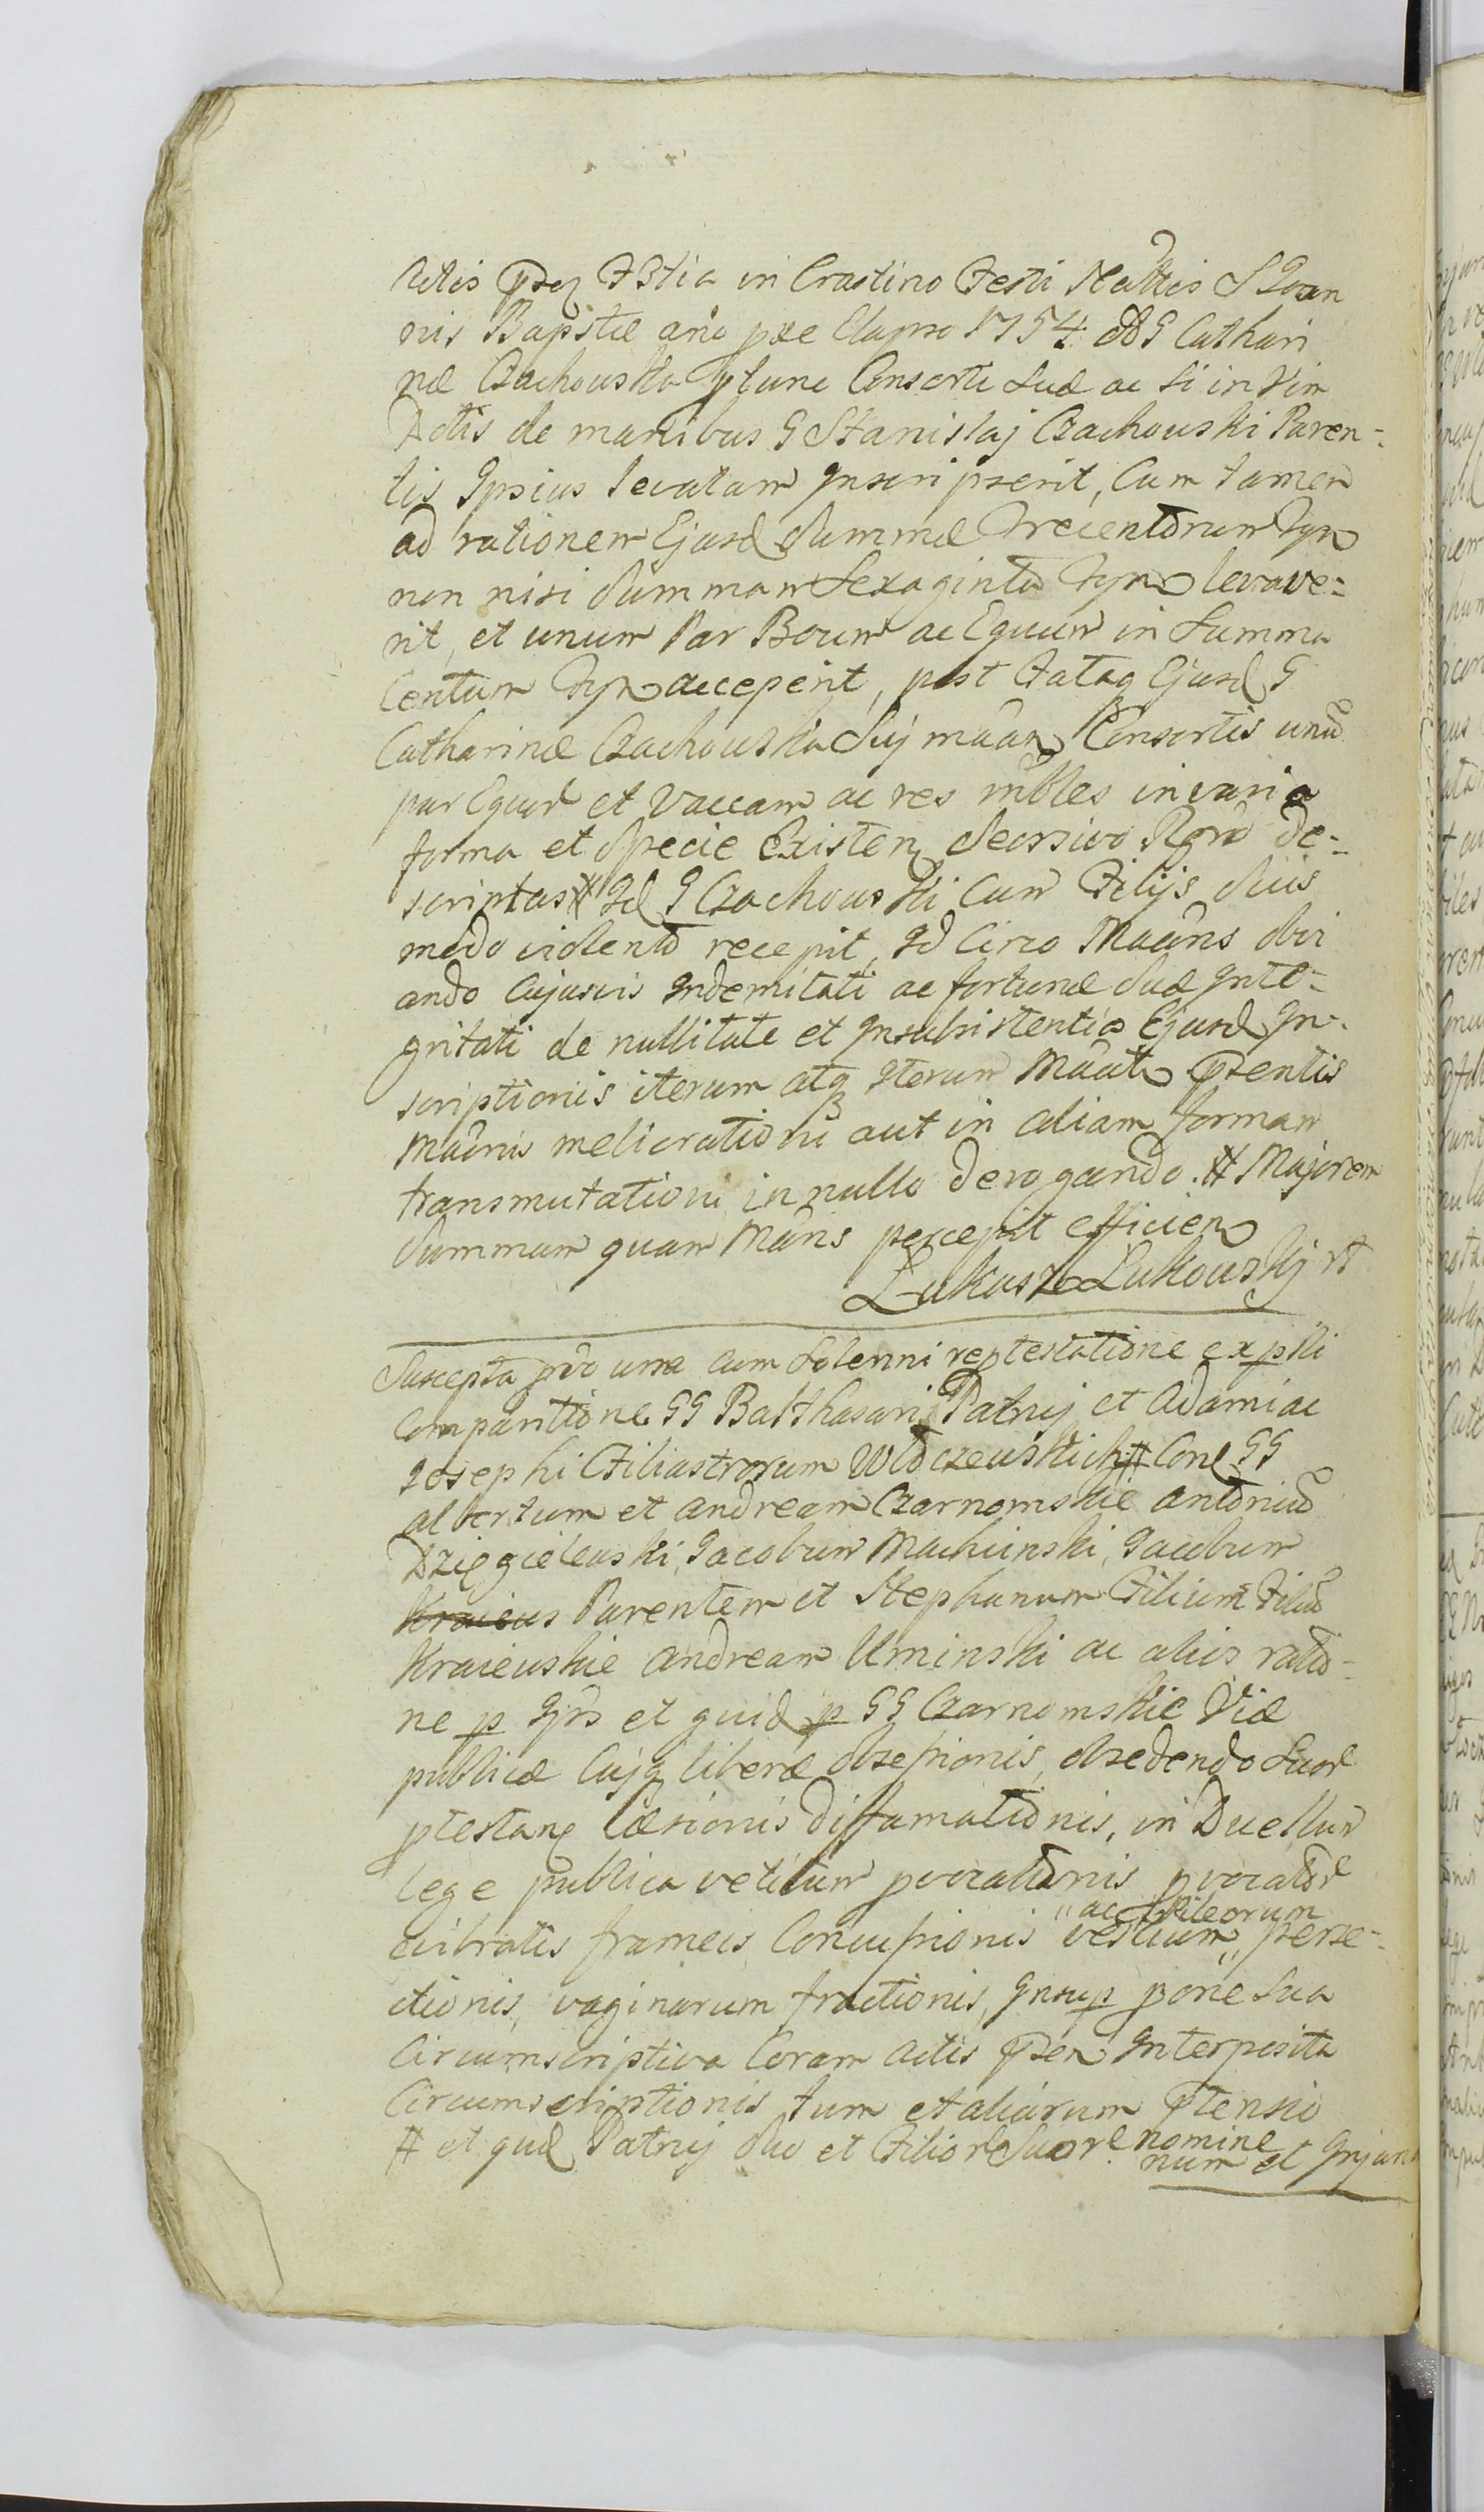 Actis in Crastino Festi S Joan
nis Baptae ano prae Elapso 1754. G Cathari
nae Czachowska tunc Consorti Suae ac si in Vim
Dotis de manibus G Stanislaj Czachowski Paren-
tis Ipsius levatam Inscripserit, Cum tamen
ad rationem Ejusd Summae Trecentorum Tyn
non nisi Summam Sexaginta Tyn levave-
rit, et unum Par Boum ac Equum in Summa
Centum Tyn acceperit, post Fataq Ejusd G
Catharinae Czachowska Suj Consortis unu
par Equor et Vaccam ac res mobles in varia
forma et Specie Existen Seorsivo Rgro de-
scriptas # Id G Czachowski Cum Filijs Suis
modo violento recepit, Id Circo Maans obvi
ando Cujusvis Indemitati ac fortunae Suae Inte-
gritati de nullitate et Insubsistentia Ejusd In-
scriptionis iterum atq Iterum Maat Psentis
Maonis melioratione aut in aliam formam
transmutationi in nullo derogando. # Majorem
Summam quam Mans percepit efficien
Lukasz Lukowskj
Suscepta pvo una cum Solenni reptestatione
Comparitione GG Balthasari Patruj et Adami ac
Josephi Filiastrorum Wloczewskich # Con GG
albertum et andream Czarnomskie antoniu
Dzięgielewski, Jacobum Machcinski, Jacobum
Kraieus Parentem et Stephanum Filium Filiu
Kraiewskie andream Uminski ac alios ratio-
ne p Ips et quid p GG Czarnomskie Viae
publicae Cujq liberae obsesionis, obsedendo Suor
ptestan laesionis diffamationis, in Duellum
lege publica vetitum pvocationis pvocator
vibratis frameis Concussionis vestium " perse-
" ac Pileorum
ctionis, vaginarum fractionis, Insup pone Sua
Circumscriptiva Coram actis Psen Interposita
Circumscriptionis tum et aliarum Ptensio
# et qud Patruj Suo et Filior Suor nomine
num et Injuria